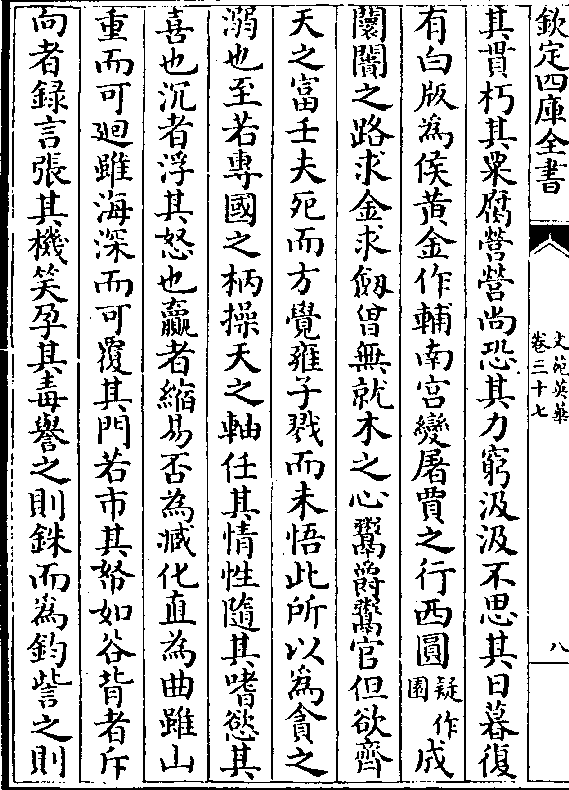 欽定四庫全書
文苑英華
卷三十七
八
其貫朽其粟腐營營尚恐其力窮汲汲不思其日暮復
有白版為侯黄金作輔南宫變屠賈之行西圓疑作園成
闤闠之路求金求劔曾無就木之心鬻爵鬻官但欲齊
天之富壬夫死而方覺雍子戮而未悟此所以為貪之
溺也至若專國之柄操天之軸任其情性隨其嗜慾其
喜也沉者浮其怒也羸者縮易否為臧化直為曲雖山
重而可廻雖海深而可覆其門若市其谿如谷背者斥
向者録言張其機笑孕其毒譽之則銖而為鈞訾之則